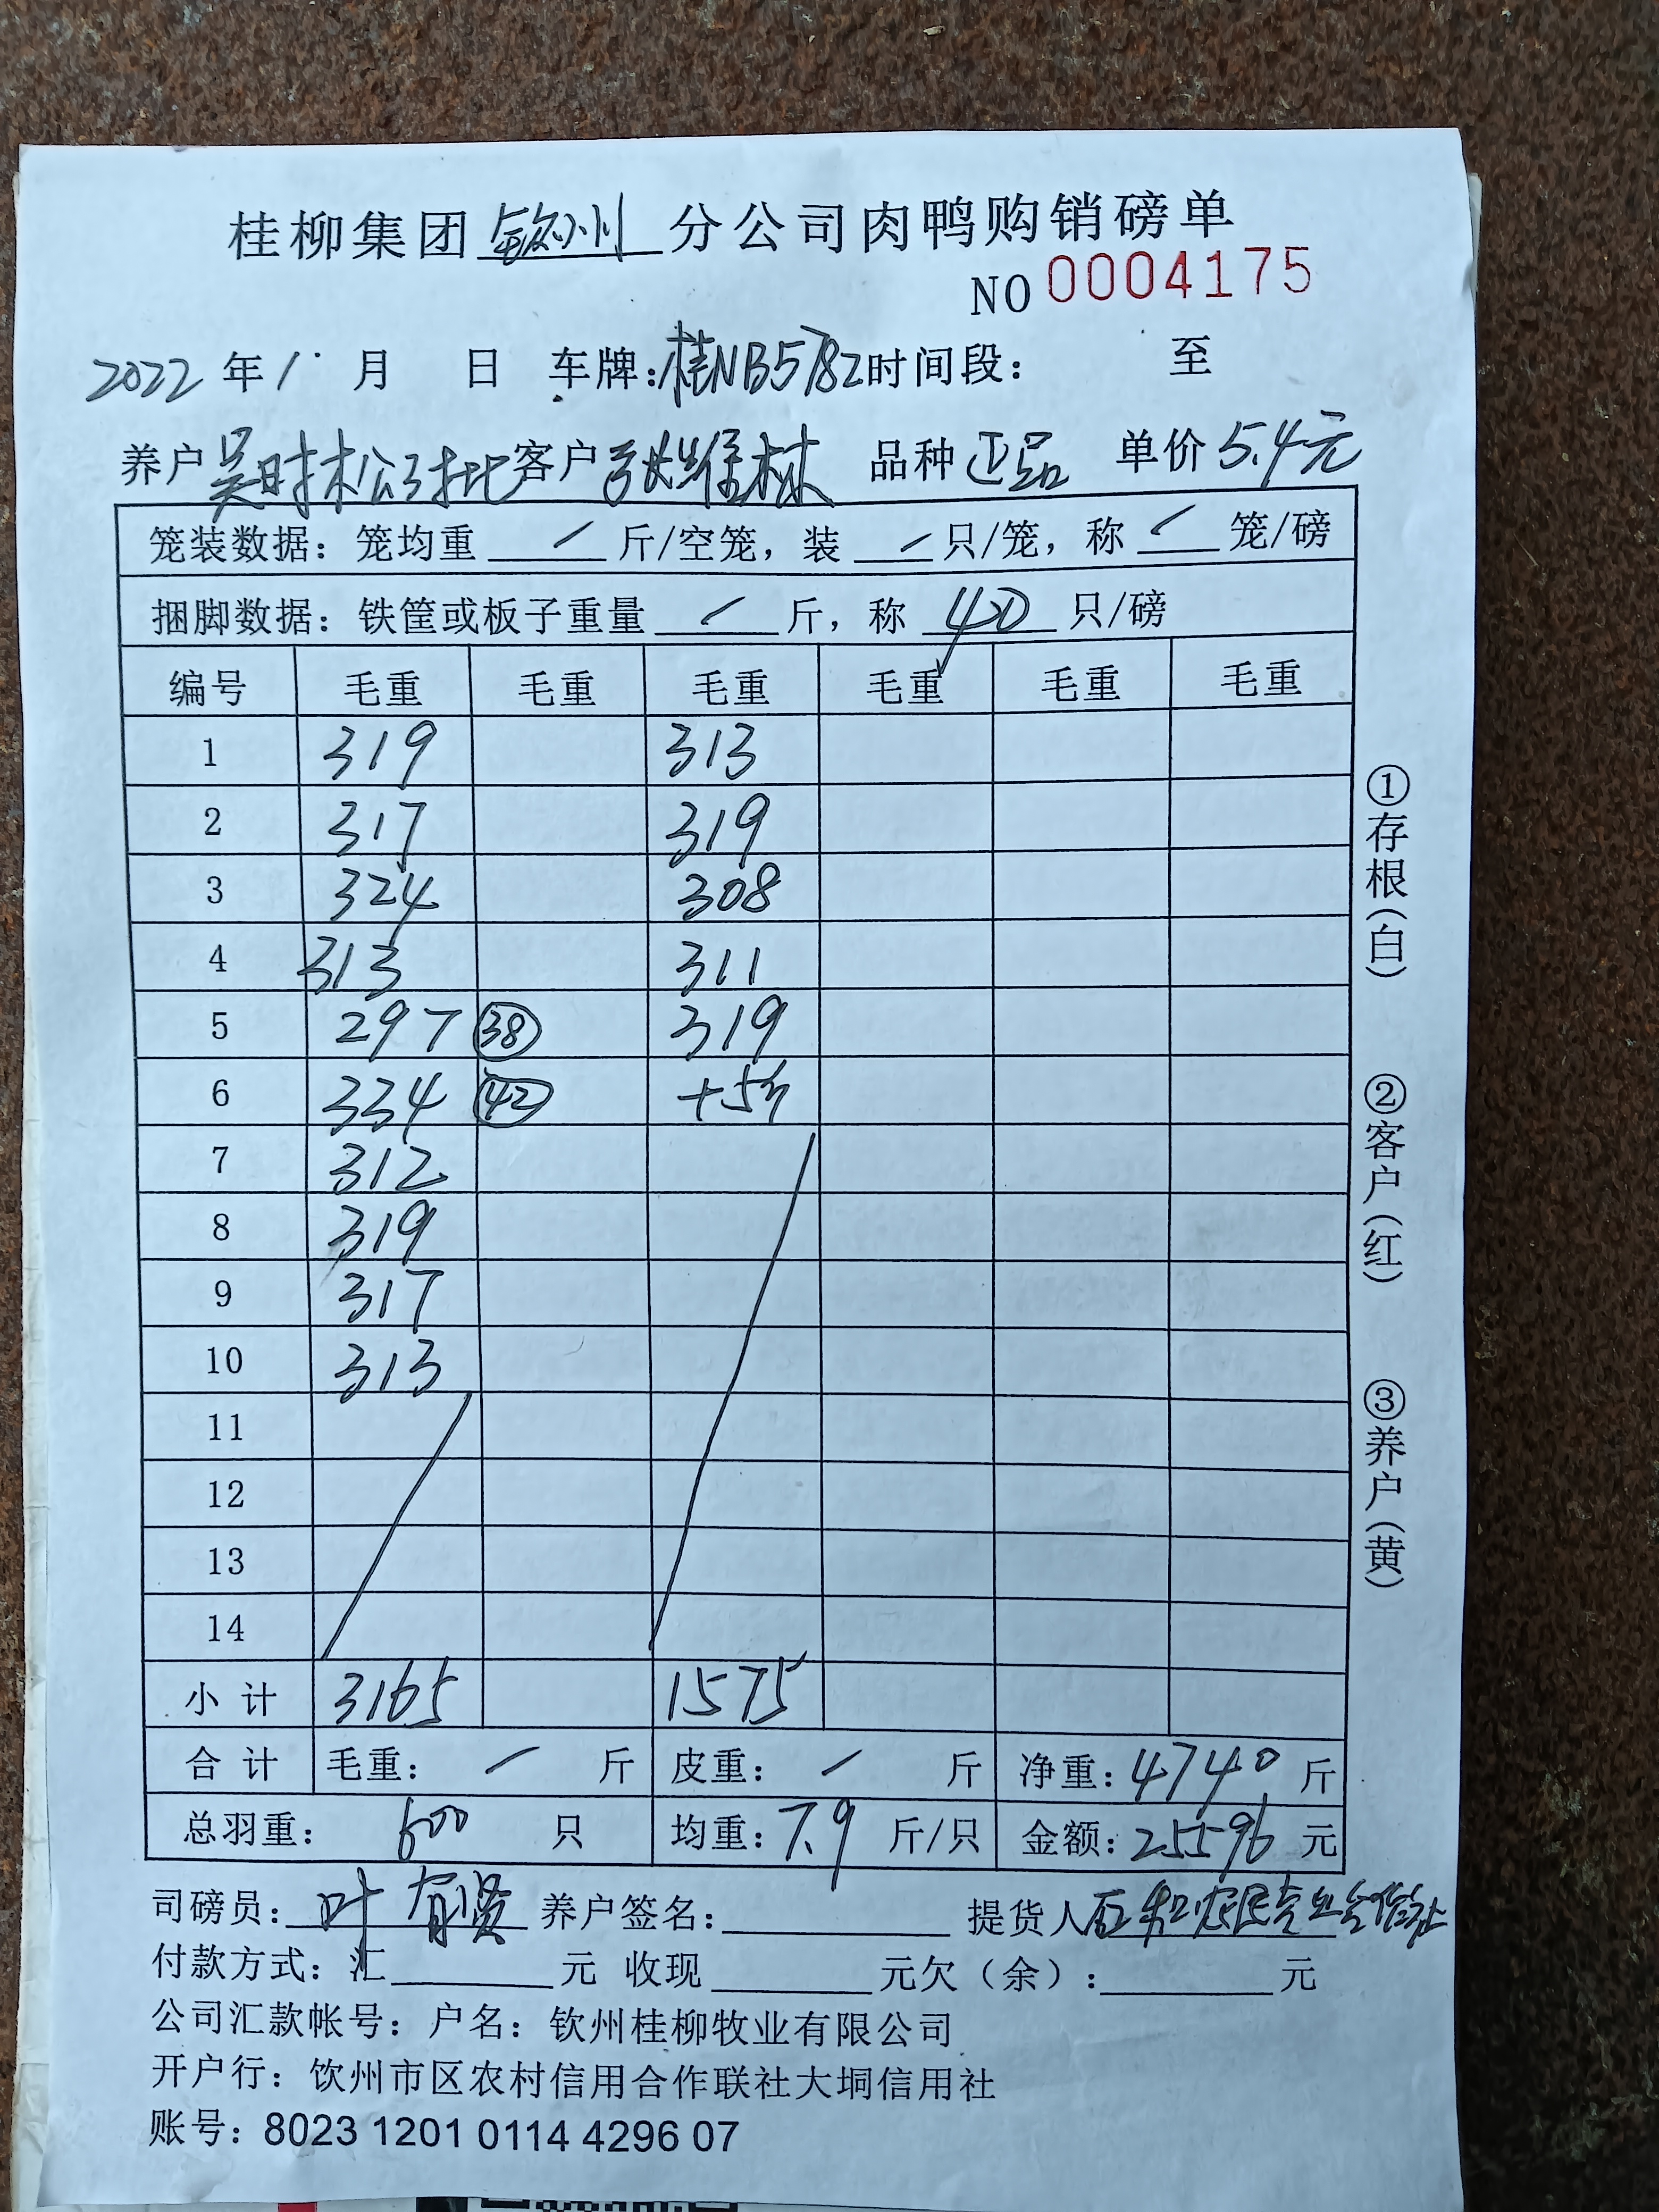 桂柳集团钦州分公司肉鸭购销磅单
NO 0004175
2022年1月 日 车牌:桂NB5782时间段: 至
养户吴时木公司批客户张维林 品种正品 单价5.4元
笼装数据:笼均重 / 斤/空笼,装 / 只/笼,称 / 笼/磅
捆脚数据:铁筐或板子重量 / 斤,称 40 只/磅
编号 毛重 毛重 毛重 毛重 毛重 毛重
1 319 313
2 317 319
3 324 308
4 313 311
5 297 38 319
6 334 42 +5斤
7 312
8 319
9 317
10 313
11
12
13
14
小计 3165 1575
合计 毛重: / 斤 皮重: / 斤 净重:4740斤
总羽重: 600 只 均重:7.9斤/只 金额:25596元
司磅员:叶有贤 养户签名: 提货人
付款方式:汇 元 收现 元欠(余): 元
公司汇款帐号:户名:钦州桂柳牧业有限公司
开户行:钦州市区农村信用合作联社大垌信用社
账号:8023 1201 0114 4296 07
①存根(白)
②客户(红)
③养户(黄)